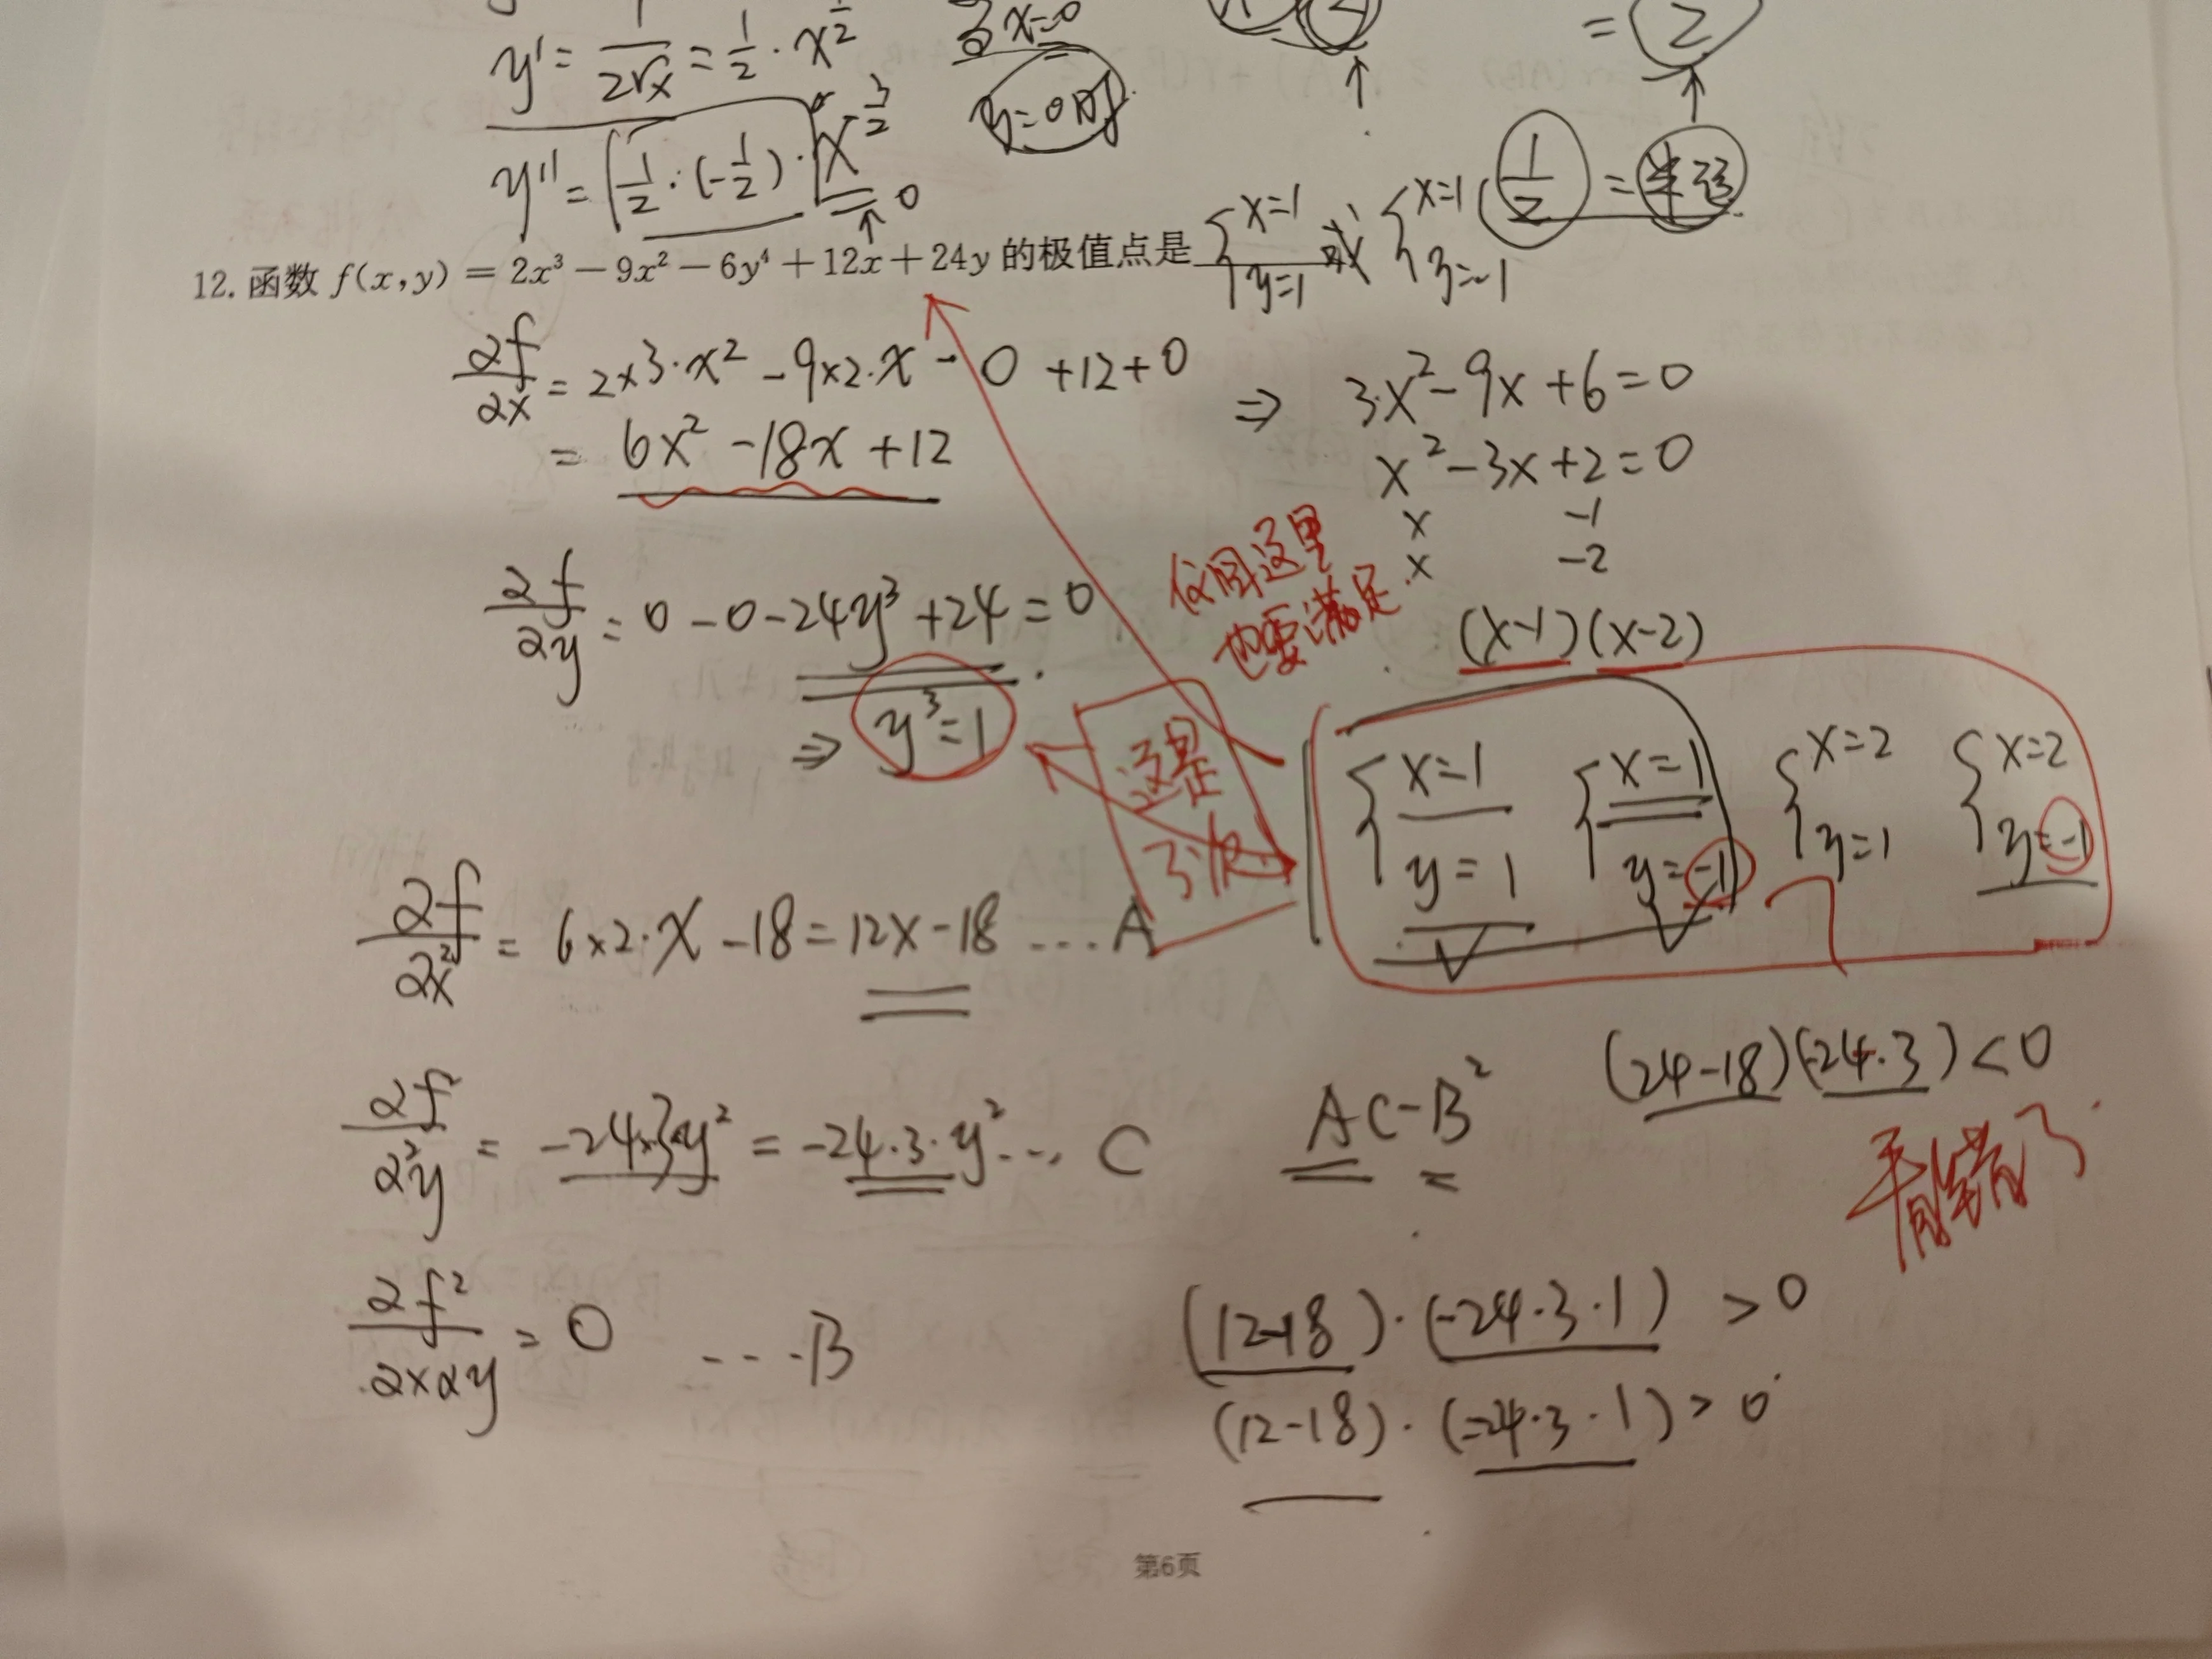 y' = 1/(2√x) = 1/2 · x^(1/2)
x=0
= 2
y'' = 1/2 · (-1/2) · x^(3/2)
0
1/2 =
12. 函数 f(x,y) = 2x³ − 9x² − 6y⁴ + 12x + 24y 的极值点是 {x=1 y=1 或 {x=1 y=-1
∂f/∂x = 2×3·x² − 9×2·x − 0 + 12 + 0
= 6x² − 18x + 12
⇒ 3x² − 9x + 6 = 0
x² − 3x + 2 = 0
x -1
x -2
(x-1)(x-2)
这里
也要满足
∂f/∂y = 0 − 0 − 24y³ + 24 = 0
⇒ y³ = 1
这是
3次
{x=1 y=1 {x=1 y=-1 {x=2 y=1 {x=2 y=-1
∂f/∂x² = 6×2·x − 18 = 12x − 18 ... A
∂f/∂²y = −24×3·y² = −24·3·y² ... C
AC−B²
(24−18)(−24·3) < 0
看错了
∂f²/∂x∂y = 0 ... B
(12−18)·(−24·3·1) > 0
(12−18)·(−24·3·1) > 0
第6页